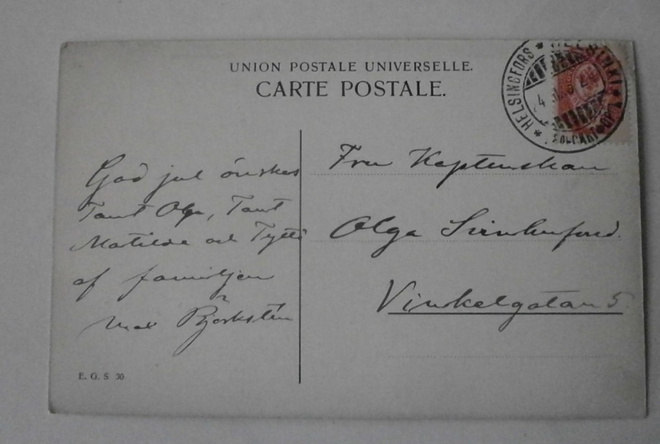 UNION POSTALE UNIVERSELLE.
CARTE POSTALE.
HELSINGFORS
HELSINKI
God jul önskas
Tant Olga, Tant
Matilda och
af familjen
Max Björkstén
Fru Kaptenskan
Olga
Vinkelgatan 5
E. G. S 30